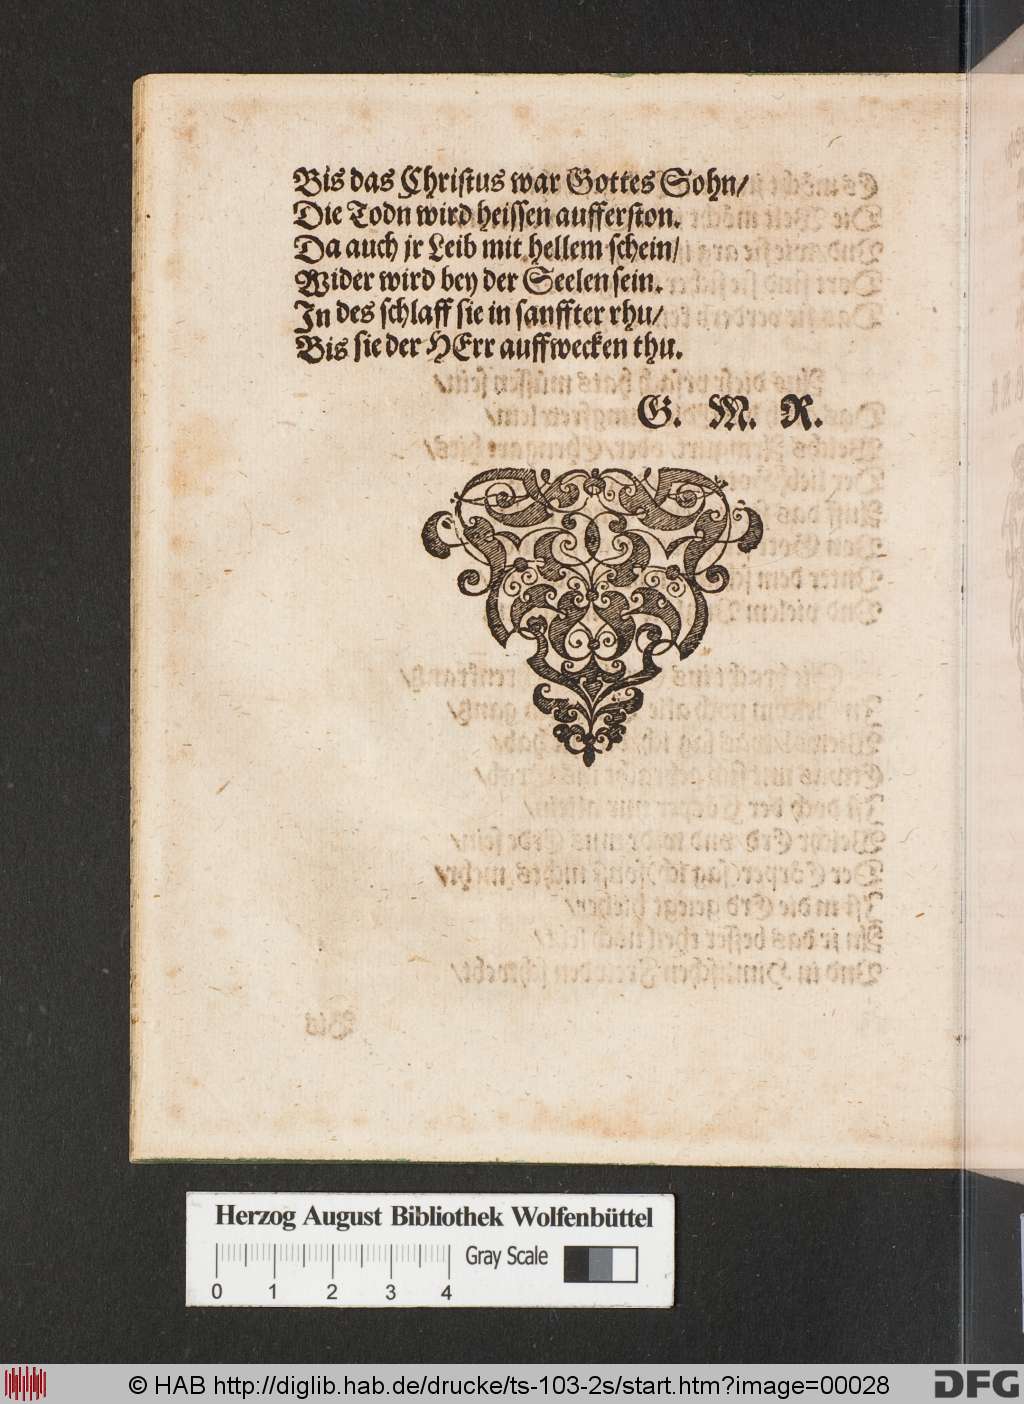 Bis das Christus war Gottes Sohn/
Die Todn wird heissen aufferston.
Da auch jr Leib mit hellem schein/
Wider wird bey der Seelen sein.
In des schlaff sie in sanffter rhu/
Bis sie der HErr auffwecken thu.
G. M. R.
Herzog August Bibliothek Wolfenbüttel
Gray Scale
0 1 2 3 4
© HAB http://diglib.hab.de/drucke/ts-103-2s/start.htm?image=00028
DFG